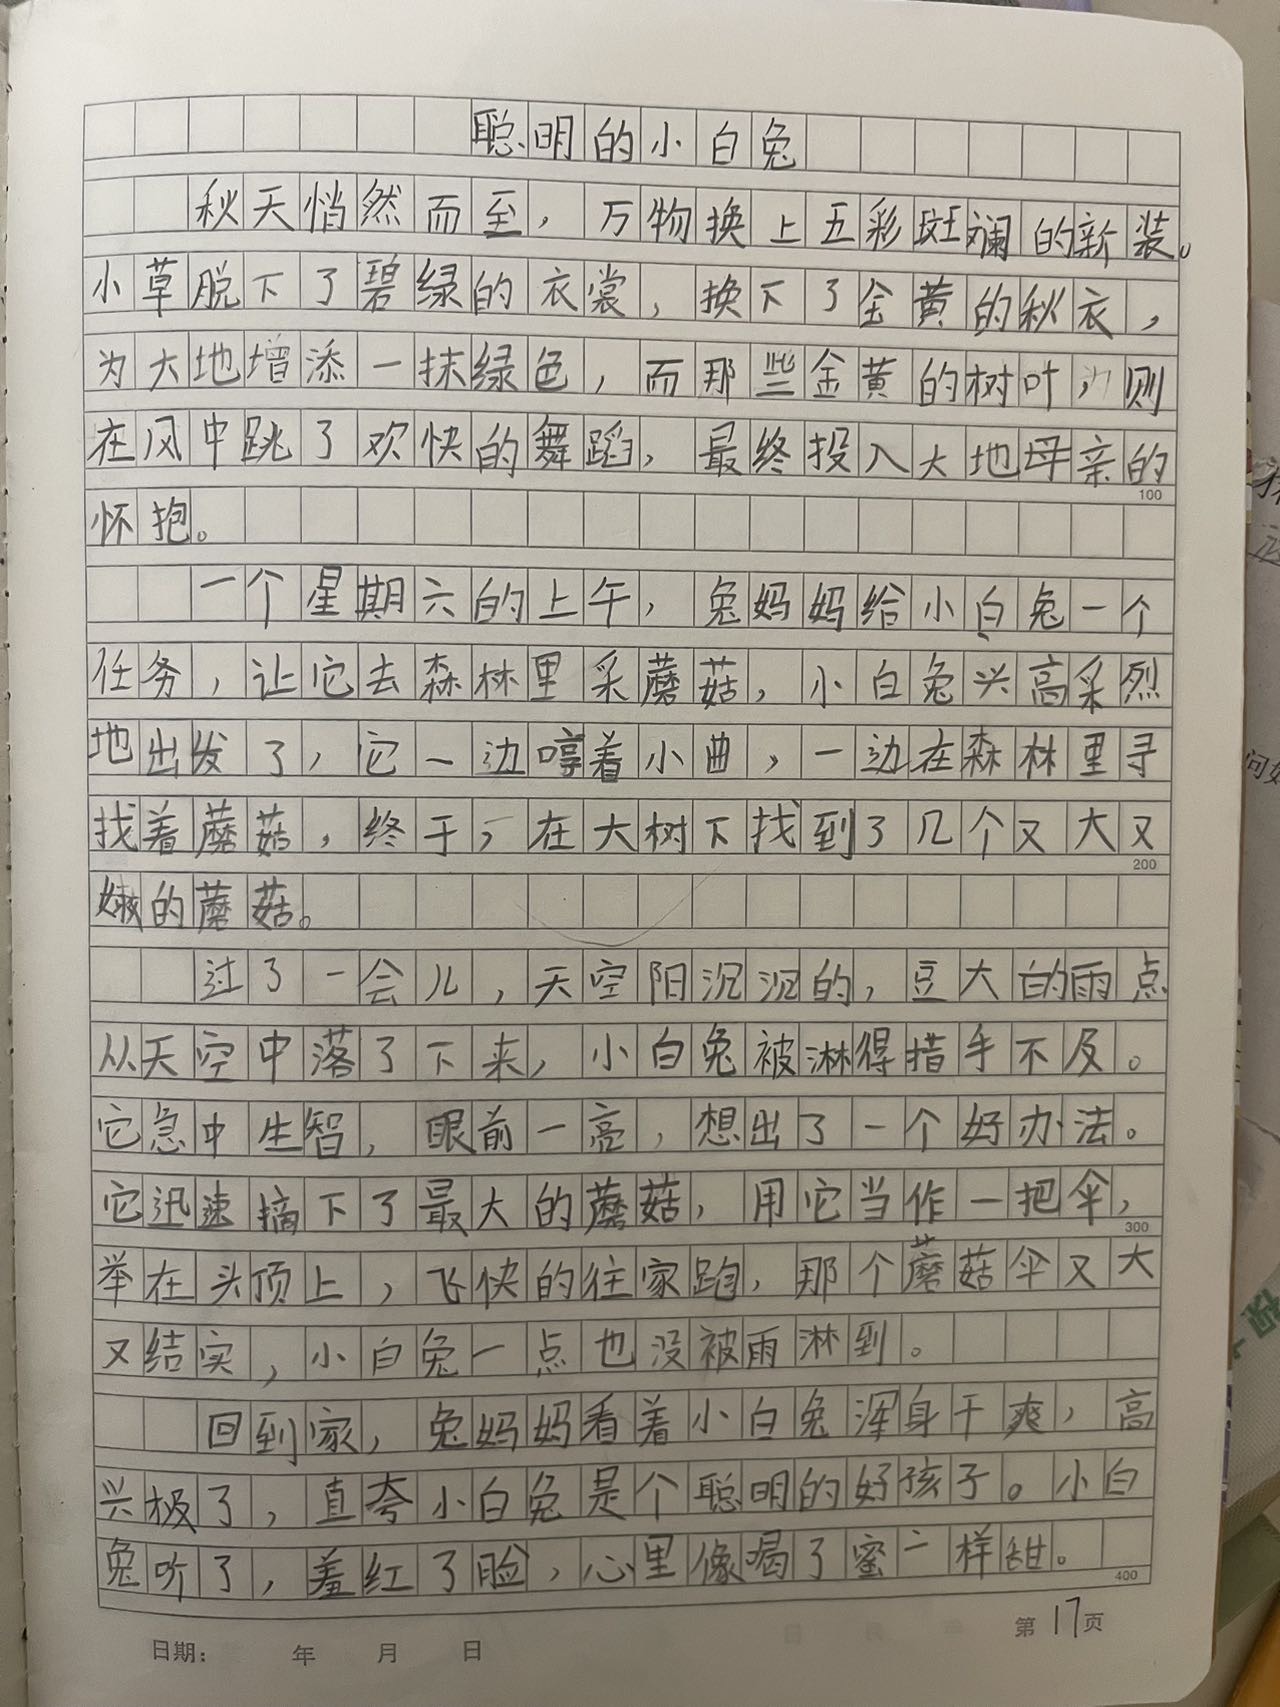 聪明的小白兔
秋天悄然而至，万物换上五彩斑斓的新装。
小草脱下了碧绿的衣裳，换下了金黄的秋衣，
为大地增添一抹绿色，而那些金黄的树叶，则
在风中跳了欢快的舞蹈，最终投入大地母亲的
100
怀抱。
一个星期六的上午，兔妈妈给小白兔一个
任务，让它去森林里采蘑菇，小白兔兴高采烈
地出发了，它一边哼着小曲，一边在森林里寻
找着蘑菇，终于，在大树下找到了几个又大又
200
嫩的蘑菇。
过了一会儿，天空阳沉沉的，豆大的雨点
从天空中落了下来，小白兔被淋得措手不及。
它急中生智，眼前一亮，想出了一个好办法。
它迅速摘下了最大的蘑菇，用它当作一把伞，
300
举在头顶上，飞快的往家跑，那个蘑菇伞又大
又结实，小白兔一点也没被雨淋到。
回到家，兔妈妈看着小白兔浑身干爽，高
兴极了，直夸小白兔是个聪明的好孩子。小白
兔听了，羞红了脸，心里像喝了蜜一样甜。
400
第17页
日期： 年 月 日